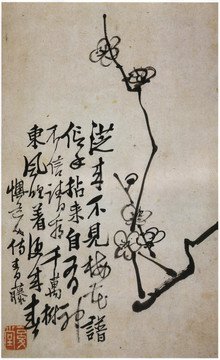 從来不見梅花譜
信手拈来自有神
不信請看千萬樹
東風吹着便成春
仿青藤